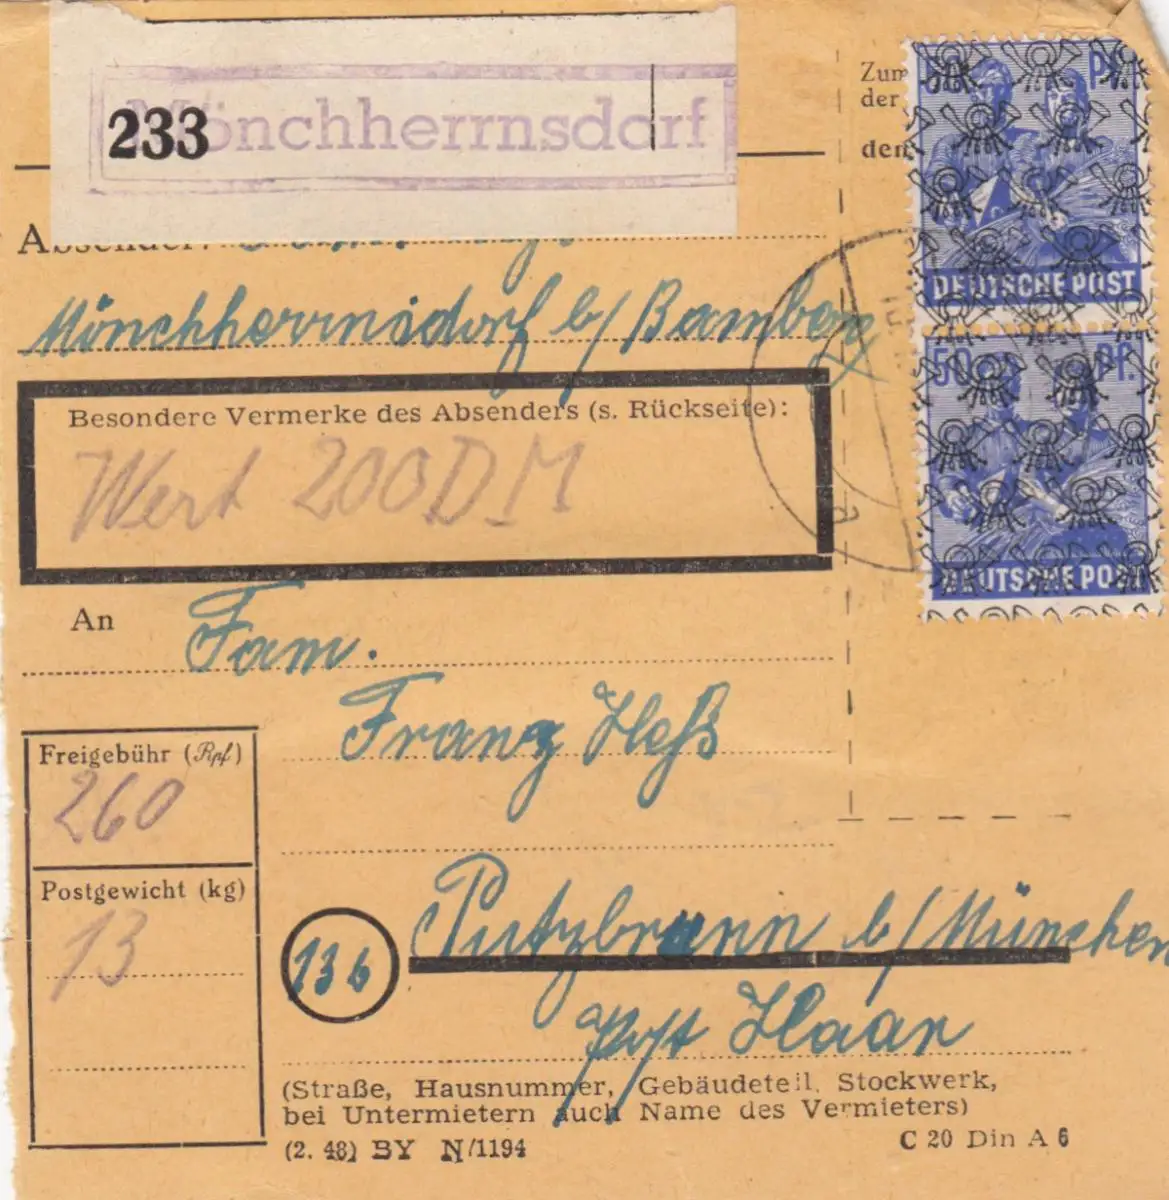 233
Mönchherrnsdorf
Absender:
Mönchherrnsdorf b/ Bamberg
Besondere Vermerke des Absenders (s. Rückseite):
Wert 200 DM
An Fam.
Franz Heß
Freigebühr (Rpf)
260
Postgewicht (kg)
13
13b
Putzbrunn b/ München
Post Haar
(Straße, Hausnummer, Gebäudeteil, Stockwerk,
bei Untermietern auch Name des Vermieters)
(2. 48) BY N/1194
C 20 Din A 6
Zum
der
den
Pf.
DEUTSCHE POST
50 Pf.
DEUTSCHE POST
a